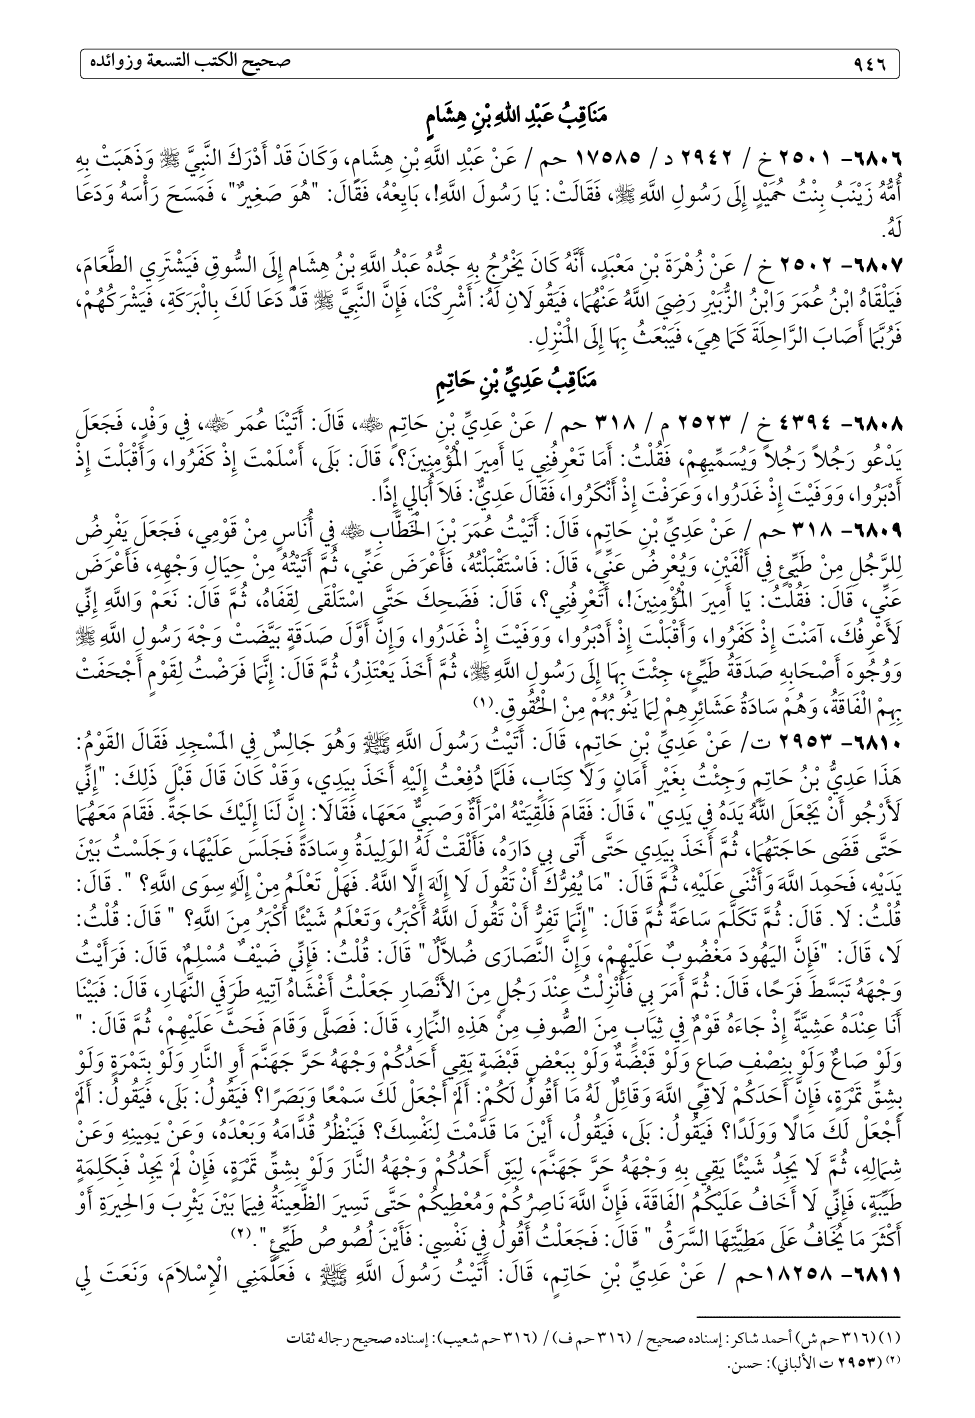 ٩٤٦ صحيح الكتب التسعة وزوائده
مَنَاقِبُ عَبْدِ اللهِ بْنِ هِشَامٍ
٦٨٠٦- ٢٥٠١ خ / ٢٩٤٢ د/ ١٧٥٨٥ حم / عَنْ عَبْدِ اللَّهِ بْنِ هِشَامٍ، وَكَانَ قَدْ أَدْرَكَ النَّبِيَّ ﷺ وَذَهَبَتْ بِهِ
أُمُّهُ زَيْنَبُ بِنْتُ حُمَيْدٍ إِلَى رَسُولِ اللَّهِ ﷺ، فَقَالَتْ: يَا رَسُولَ اللَّهِ!، بَايِعْهُ، فَقَالَ: "هُوَ صَغِيرٌ"، فَمَسَحَ رَأْسَهُ وَدَعَا
لَهُ.
٦٨٠٧- ٢٥٠٢ خ / عَنْ زُهْرَةَ بْنِ مَعْبَدٍ، أَنَّهُ كَانَ يَخْرُجُ بِهِ جَدُّهُ عَبْدُ اللَّهِ بْنُ هِشَامٍ إِلَى السُّوقِ فَيَشْتَرِي الطَّعَامَ،
فَيَلْقَاهُ ابْنُ عُمَرَ وَابْنُ الزُّبَيْرِ رَضِيَ اللَّهُ عَنْهُمَا، فَيَقُولَانِ لَهُ: أَشْرِكْنَا، فَإِنَّ النَّبِيَّ ﷺ قَدْ دَعَا لَكَ بِالْبَرَكَةِ، فَيَشْرَكُهُمْ،
فَرُبَّمَا أَصَابَ الرَّاحِلَةَ كَمَا هِيَ، فَيَبْعَثُ بِهَا إِلَى الْمَنْزِلِ.
مَنَاقِبُ عَدِيِّ بْنِ حَاتِمِ
٦٨٠٨- ٤٣٩٤ خ / ٢٥٢٣ م / ٣١٨ حم / عَنْ عَدِيِّ بْنِ حَاتِمٍ ﵁، قَالَ: أَتَيْنَا عُمَرَ ﵁، فِي وَفْدٍ، فَجَعَلَ
يَدْعُو رَجُلاً رَجُلاً وَيُسَمِّيهِمْ، فَقُلْتُ: أَمَا تَعْرِفُنِي يَا أَمِيرَ الْمُؤْمِنِينَ؟، قَالَ: بَلَى، أَسْلَمْتَ إِذْ كَفَرُوا، وَأَقْبَلْتَ إِذْ
أَدْبَرُوا، وَوَفَيْتَ إِذْ غَدَرُوا، وَعَرَفْتَ إِذْ أَنْكَرُوا، فَقَالَ عَدِيٌّ: فَلاَ أُبَالِي إِذًا.
٦٨٠٩- ٣١٨ حم / عَنْ عَدِيِّ بْنِ حَاتِمٍ، قَالَ: أَتَيْتُ عُمَرَ بْنَ الْخَطَّابِ ﵁ فِي أُنَاسٍ مِنْ قَوْمِي، فَجَعَلَ يَفْرِضُ
لِلرَّجُلِ مِنْ طَيِّئٍ فِي أَلْفَيْنِ، وَيُعْرِضُ عَنِّي، قَالَ: فَاسْتَقْبَلْتُهُ، فَأَعْرَضَ عَنِّي، ثُمَّ أَتَيْتُهُ مِنْ حِيَالِ وَجْهِهِ، فَأَعْرَضَ
عَنِّي، قَالَ: فَقُلْتُ: يَا أَمِيرَ الْمُؤْمِنِينَ!، أَتَعْرِفُنِي؟، قَالَ: فَضَحِكَ حَتَّى اسْتَلْقَى لِقَفَاهُ، ثُمَّ قَالَ: نَعَمْ وَاللَّهِ إِنِّي
لَأَعْرِفُكَ، آمَنْتَ إِذْ كَفَرُوا، وَأَقْبَلْتَ إِذْ أَدْبَرُوا، وَوَفَيْتَ إِذْ غَدَرُوا، وَإِنَّ أَوَّلَ صَدَقَةٍ بَيَّضَتْ وَجْهَ رَسُولِ اللَّهِ ﷺ
وَوُجُوهَ أَصْحَابِهِ صَدَقَةُ طَيِّئٍ، جِئْتَ بِهَا إِلَى رَسُولِ اللَّهِ ﷺ، ثُمَّ أَخَذَ يَعْتَذِرُ، ثُمَّ قَالَ: إِنَّمَا فَرَضْتُ لِقَوْمٍ أَجْحَفَتْ
بِهِمْ الْفَاقَةُ، وَهُمْ سَادَةُ عَشَائِرِهِمْ لِمَا يَنُوبُهُمْ مِنْ الْحُقُوقِ.(١)
٦٨١٠- ٢٩٥٣ ت/ عَنْ عَدِيِّ بْنِ حَاتِمٍ، قَالَ: أَتَيْتُ رَسُولَ اللَّهِ ﷺ وَهُوَ جَالِسٌ فِي المَسْجِدِ فَقَالَ القَوْمُ:
هَذَا عَدِيُّ بْنُ حَاتِمٍ وَجِئْتُ بِغَيْرِ أَمَانٍ وَلَا كِتَابٍ، فَلَمَّا دُفِعْتُ إِلَيْهِ أَخَذَ بِيَدِي، وَقَدْ كَانَ قَالَ قَبْلَ ذَلِكَ: "إِنِّي
لَأَرْجُو أَنْ يَجْعَلَ اللَّهُ يَدَهُ فِي يَدِي"، قَالَ: فَقَامَ فَلَقِيَتْهُ امْرَأَةٌ وَصَبِيٌّ مَعَهَا، فَقَالَا: إِنَّ لَنَا إِلَيْكَ حَاجَةً. فَقَامَ مَعَهُمَا
حَتَّى قَضَى حَاجَتَهُمَا، ثُمَّ أَخَذَ بِيَدِي حَتَّى أَتَى بِي دَارَهُ، فَأَلْقَتْ لَهُ الوَلِيدَةُ وِسَادَةً فَجَلَسَ عَلَيْهَا، وَجَلَسْتُ بَيْنَ
يَدَيْهِ، فَحَمِدَ اللَّهَ وَأَثْنَى عَلَيْهِ، ثُمَّ قَالَ: "مَا يُفِرُّكَ أَنْ تَقُولَ لَا إِلَهَ إِلَّا اللَّهُ. فَهَلْ تَعْلَمُ مِنْ إِلَهٍ سِوَى اللَّهِ؟ ". قَالَ:
قُلْتُ: لَا. قَالَ: ثُمَّ تَكَلَّمَ سَاعَةً ثُمَّ قَالَ: "إِنَّمَا تَفِرُّ أَنْ تَقُولَ اللَّهُ أَكْبَرُ، وَتَعْلَمُ شَيْئًا أَكْبَرُ مِنَ اللَّهِ؟ " قَالَ: قُلْتُ:
لَا، قَالَ: "فَإِنَّ اليَهُودَ مَغْضُوبٌ عَلَيْهِمْ، وَإِنَّ النَّصَارَى ضُلاَّلٌ" قَالَ: قُلْتُ: فَإِنِّي ضَيْفٌ مُسْلِمٌ، قَالَ: فَرَأَيْتُ
وَجْهَهُ تَبَسَّطَ فَرَحًا، قَالَ: ثُمَّ أَمَرَ بِي فَأُنْزِلْتُ عِنْدَ رَجُلٍ مِنَ الأَنْصَارِ جَعَلْتُ أَغْشَاهُ آتِيهِ طَرَفَيِ النَّهَارِ، قَالَ: فَبَيْنَا
أَنَا عِنْدَهُ عَشِيَّةً إِذْ جَاءَهُ قَوْمٌ فِي ثِيَابٍ مِنَ الصُّوفِ مِنْ هَذِهِ النِّمَارِ، قَالَ: فَصَلَّى وَقَامَ فَحَثَّ عَلَيْهِمْ، ثُمَّ قَالَ: "
وَلَوْ صَاعٌ وَلَوْ بِنِصْفِ صَاعٍ وَلَوْ قَبْضَةٌ وَلَوْ بِبَعْضِ قَبْضَةٍ يَقِي أَحَدُكُمْ وَجْهَهُ حَرَّ جَهَنَّمَ أَوِ النَّارِ وَلَوْ بِتَمْرَةٍ وَلَوْ
بِشِقِّ تَمْرَةٍ، فَإِنَّ أَحَدَكُمْ لَاقِي اللَّهَ وَقَائِلٌ لَهُ مَا أَقُولُ لَكُمْ: أَلَمْ أَجْعَلْ لَكَ سَمْعًا وَبَصَرًا؟ فَيَقُولُ: بَلَى، فَيَقُولُ: أَلَمْ
أَجْعَلْ لَكَ مَالًا وَوَلَدًا؟ فَيَقُولُ: بَلَى، فَيَقُولُ، أَيْنَ مَا قَدَّمْتَ لِنَفْسِكَ؟ فَيَنْظُرُ قُدَّامَهُ وَبَعْدَهُ، وَعَنْ يَمِينِهِ وَعَنْ
شِمَالِهِ، ثُمَّ لَا يَجِدُ شَيْئًا يَقِي بِهِ وَجْهَهُ حَرَّ جَهَنَّمَ، لِيَقِ أَحَدُكُمْ وَجْهَهُ النَّارَ وَلَوْ بِشِقِّ تَمْرَةٍ، فَإِنْ لَمْ يَجِدْ فَبِكَلِمَةٍ
طَيِّبَةٍ، فَإِنِّي لَا أَخَافُ عَلَيْكُمُ الفَاقَةَ، فَإِنَّ اللَّهَ نَاصِرُكُمْ وَمُعْطِيكُمْ حَتَّى تَسِيرَ الظَّعِينَةُ فِيمَا بَيْنَ يَثْرِبَ وَالحِيرَةِ أَوْ
أَكْثَرَ مَا يُخَافُ عَلَى مَطِيَّتِهَا السَّرَقُ " قَالَ: فَجَعَلْتُ أَقُولُ فِي نَفْسِي: فَأَيْنَ لُصُوصُ طَيِّئٍ ".(٢)
٦٨١١- ١٨٢٥٨حم / عَنْ عَدِيِّ بْنِ حَاتِمٍ، قَالَ: أَتَيْتُ رَسُولَ اللَّهِ ﷺ ، فَعَلَّمَنِي الْإِسْلَامَ، وَنَعَتَ لِي
(١) (٣١٦ حم ش) أحمد شاكر: إسناده صحيح / (٣١٦ حم ف) / (٣١٦ حم شعيب): إسناده صحيح رجاله ثقات
(٢) (٢٩٥٣ ت الألباني): حسن.